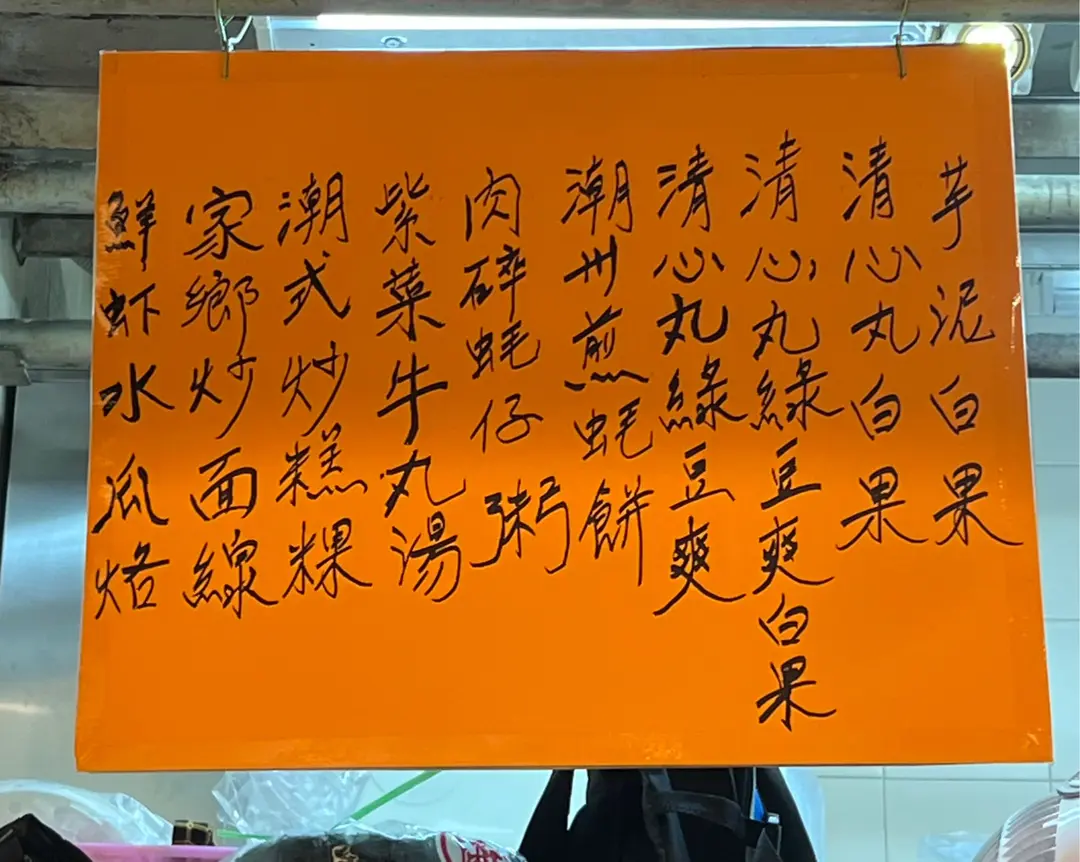 芋泥白果
清心丸白果
清心丸綠豆爽白果
清心丸綠豆爽
潮州煎蚝餅
肉碎蚝仔粥
紫菜牛丸湯
潮式炒糕粿
家鄉炒面線
鮮虾水瓜烙